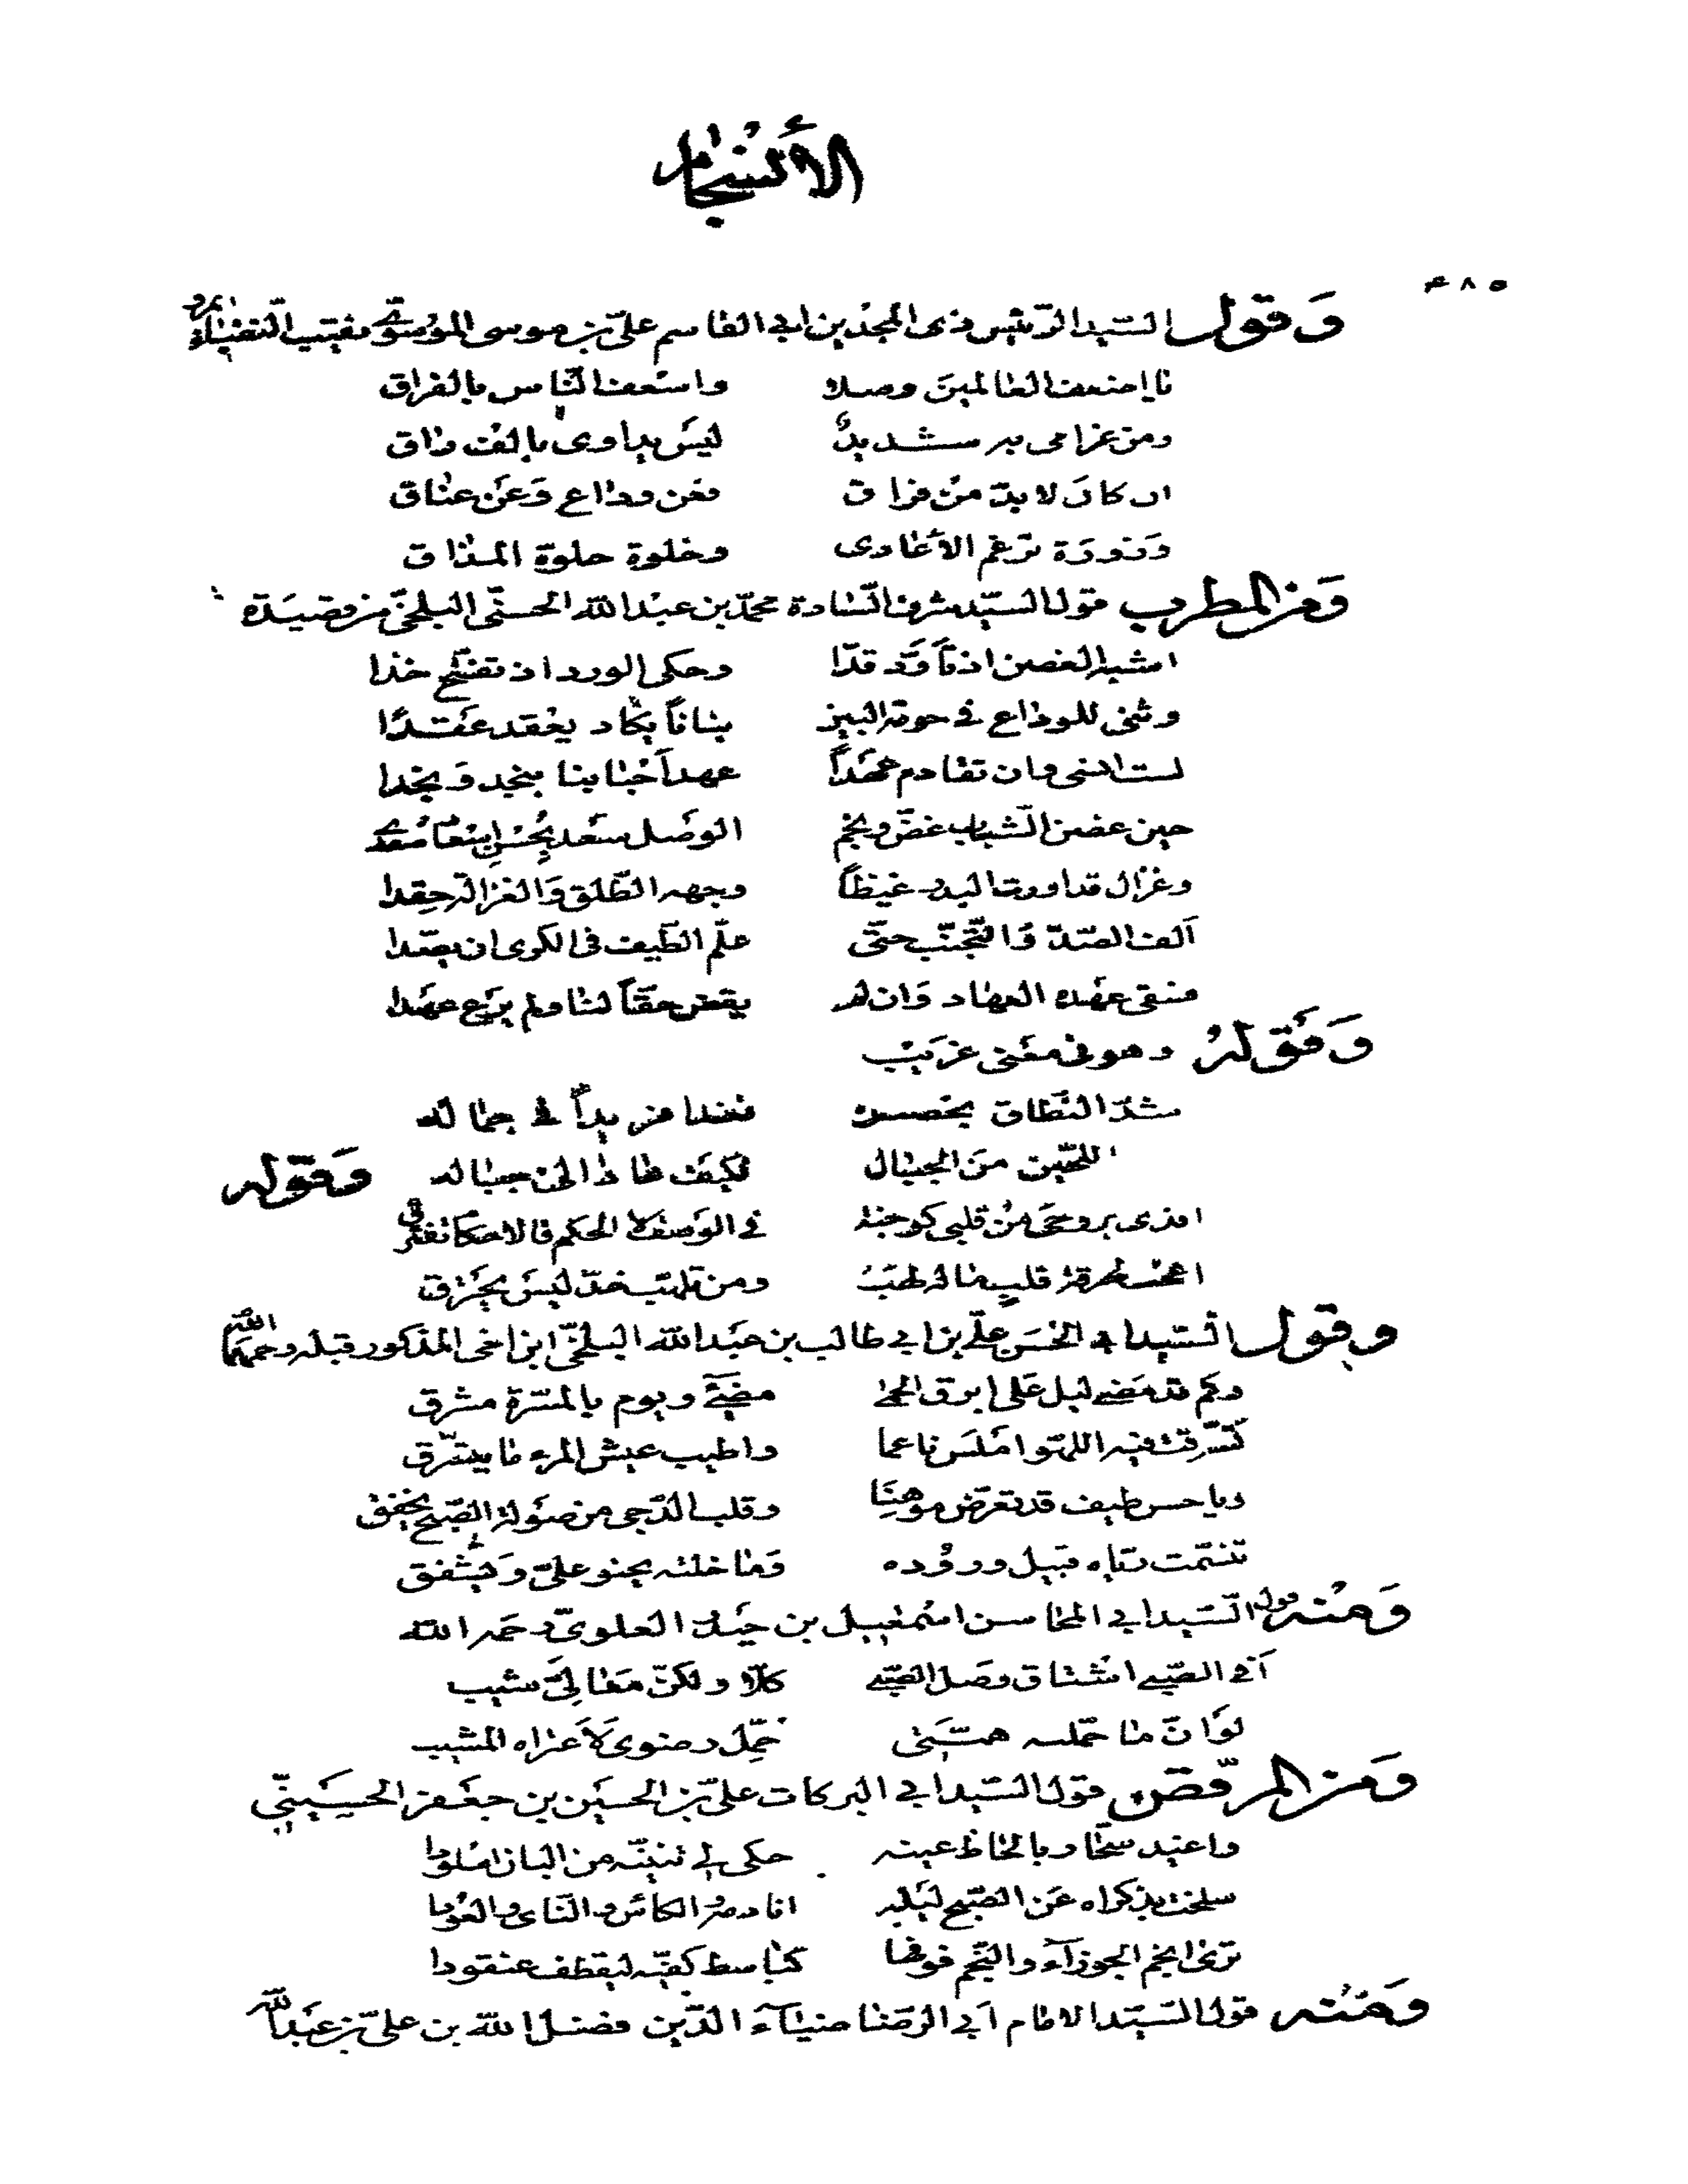 الأنسجام
٤٨٥
وقول السيد الرئيس ذى المجدين ابي القاسم علي بن موسى الموسوي نقيب النقباء بمرو
واستعف الناس بالفراق
ومن غرامى به شديد ليس يداوى بالف راق
ان كان لا بد من فراق فعن وداع وعن عناق
وزورة ترغم الأعادى وخلوة حلوة المذاق
ومن المطرب قول السيد شرف السادة محمد بن عبد الله الحسنى البلخى من قصيدة
اشبه الغصن اذ تأود قدا وحكى الورد اذ تفتح خدا
وثنى للوداع في حومة البين بنانا يكاد يعقد عقدا
لست انسى وان تقادم عهدا عهد احبابنا بنجد ونجدا
حين غصن الشباب غض ونجم الوصل سعد بحسن اسعاف سعدى
وغزال قد اورث البدر غيظا وجهه الطلق والغزالة حقدا
الف الصد والتجنب حتى علم الطيف في الكرى ان يصدا
فسقى عهده العهاد وان لم يقض حقا لنا ولم يرع عهدا
وقوله وهو في معنى غريب
شد النطاق بخصره فغدا فريدا في جماله
اللجين من الجبال فكيف هذا الحن جباله وقوله
افدى بروحى من قلبى كوجنته في الوصف لا الحكم فالاحكام تفترق
اعجب لحرقة قلب ماله لهب ومن تلهب خد ليس يحترق
وقول السيد ابى الحسن علي بن ابي طالب بن عبد الله البلخى ابن اخى المذكور قبله رحمهما الله
وكم قد مضى ليل على ابرق الحمى مضيئ ويوم بالمسرة مشرق
تسرقت فيه اللهو املس ناعما واطيب عيش المرء ما يتسرق
ويا حسن طيف قد تعرض موهنا وقلب الدجى من صولة الصبح يخفق
تنسمت رياه قبيل وروده وما خلته يحنو علي ويشفق
ومنه قول السيد ابي المحاسن اسمعيل بن حيدر العلوى رحمه الله
أنى الصبى اشتاق وصل الصبى كلا ولكن مقالى مشيب
لو ان ما حملت همتنى حمل رضوى لاعتراه المشيب
ومن المرقص قول السيد ابي البركات علي بن الحسين بن جعفر الحسينى
واغيد سحار بالحاظ عينه حكى لى تثنيه من البان املودا
سلخت بذكراه عن الصبح ليله انادم الكاس والناى والعودا
ترى انجم الجوزآء والنجم فوقها كباسط كفيه ليقطف عنقودا
ومنه قول السيد الامام أبي الرضا ضيآء الدين فضل الله بن علي بن عبد الله